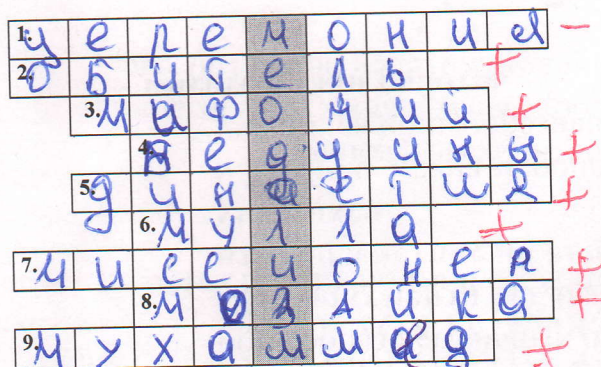 1. церемония −
2. обитель +
3. Мефодий +
4. бедуины +
5. династия +
6. мулла +
7. миссионер +
8. мозайка +
9. мухаммад +